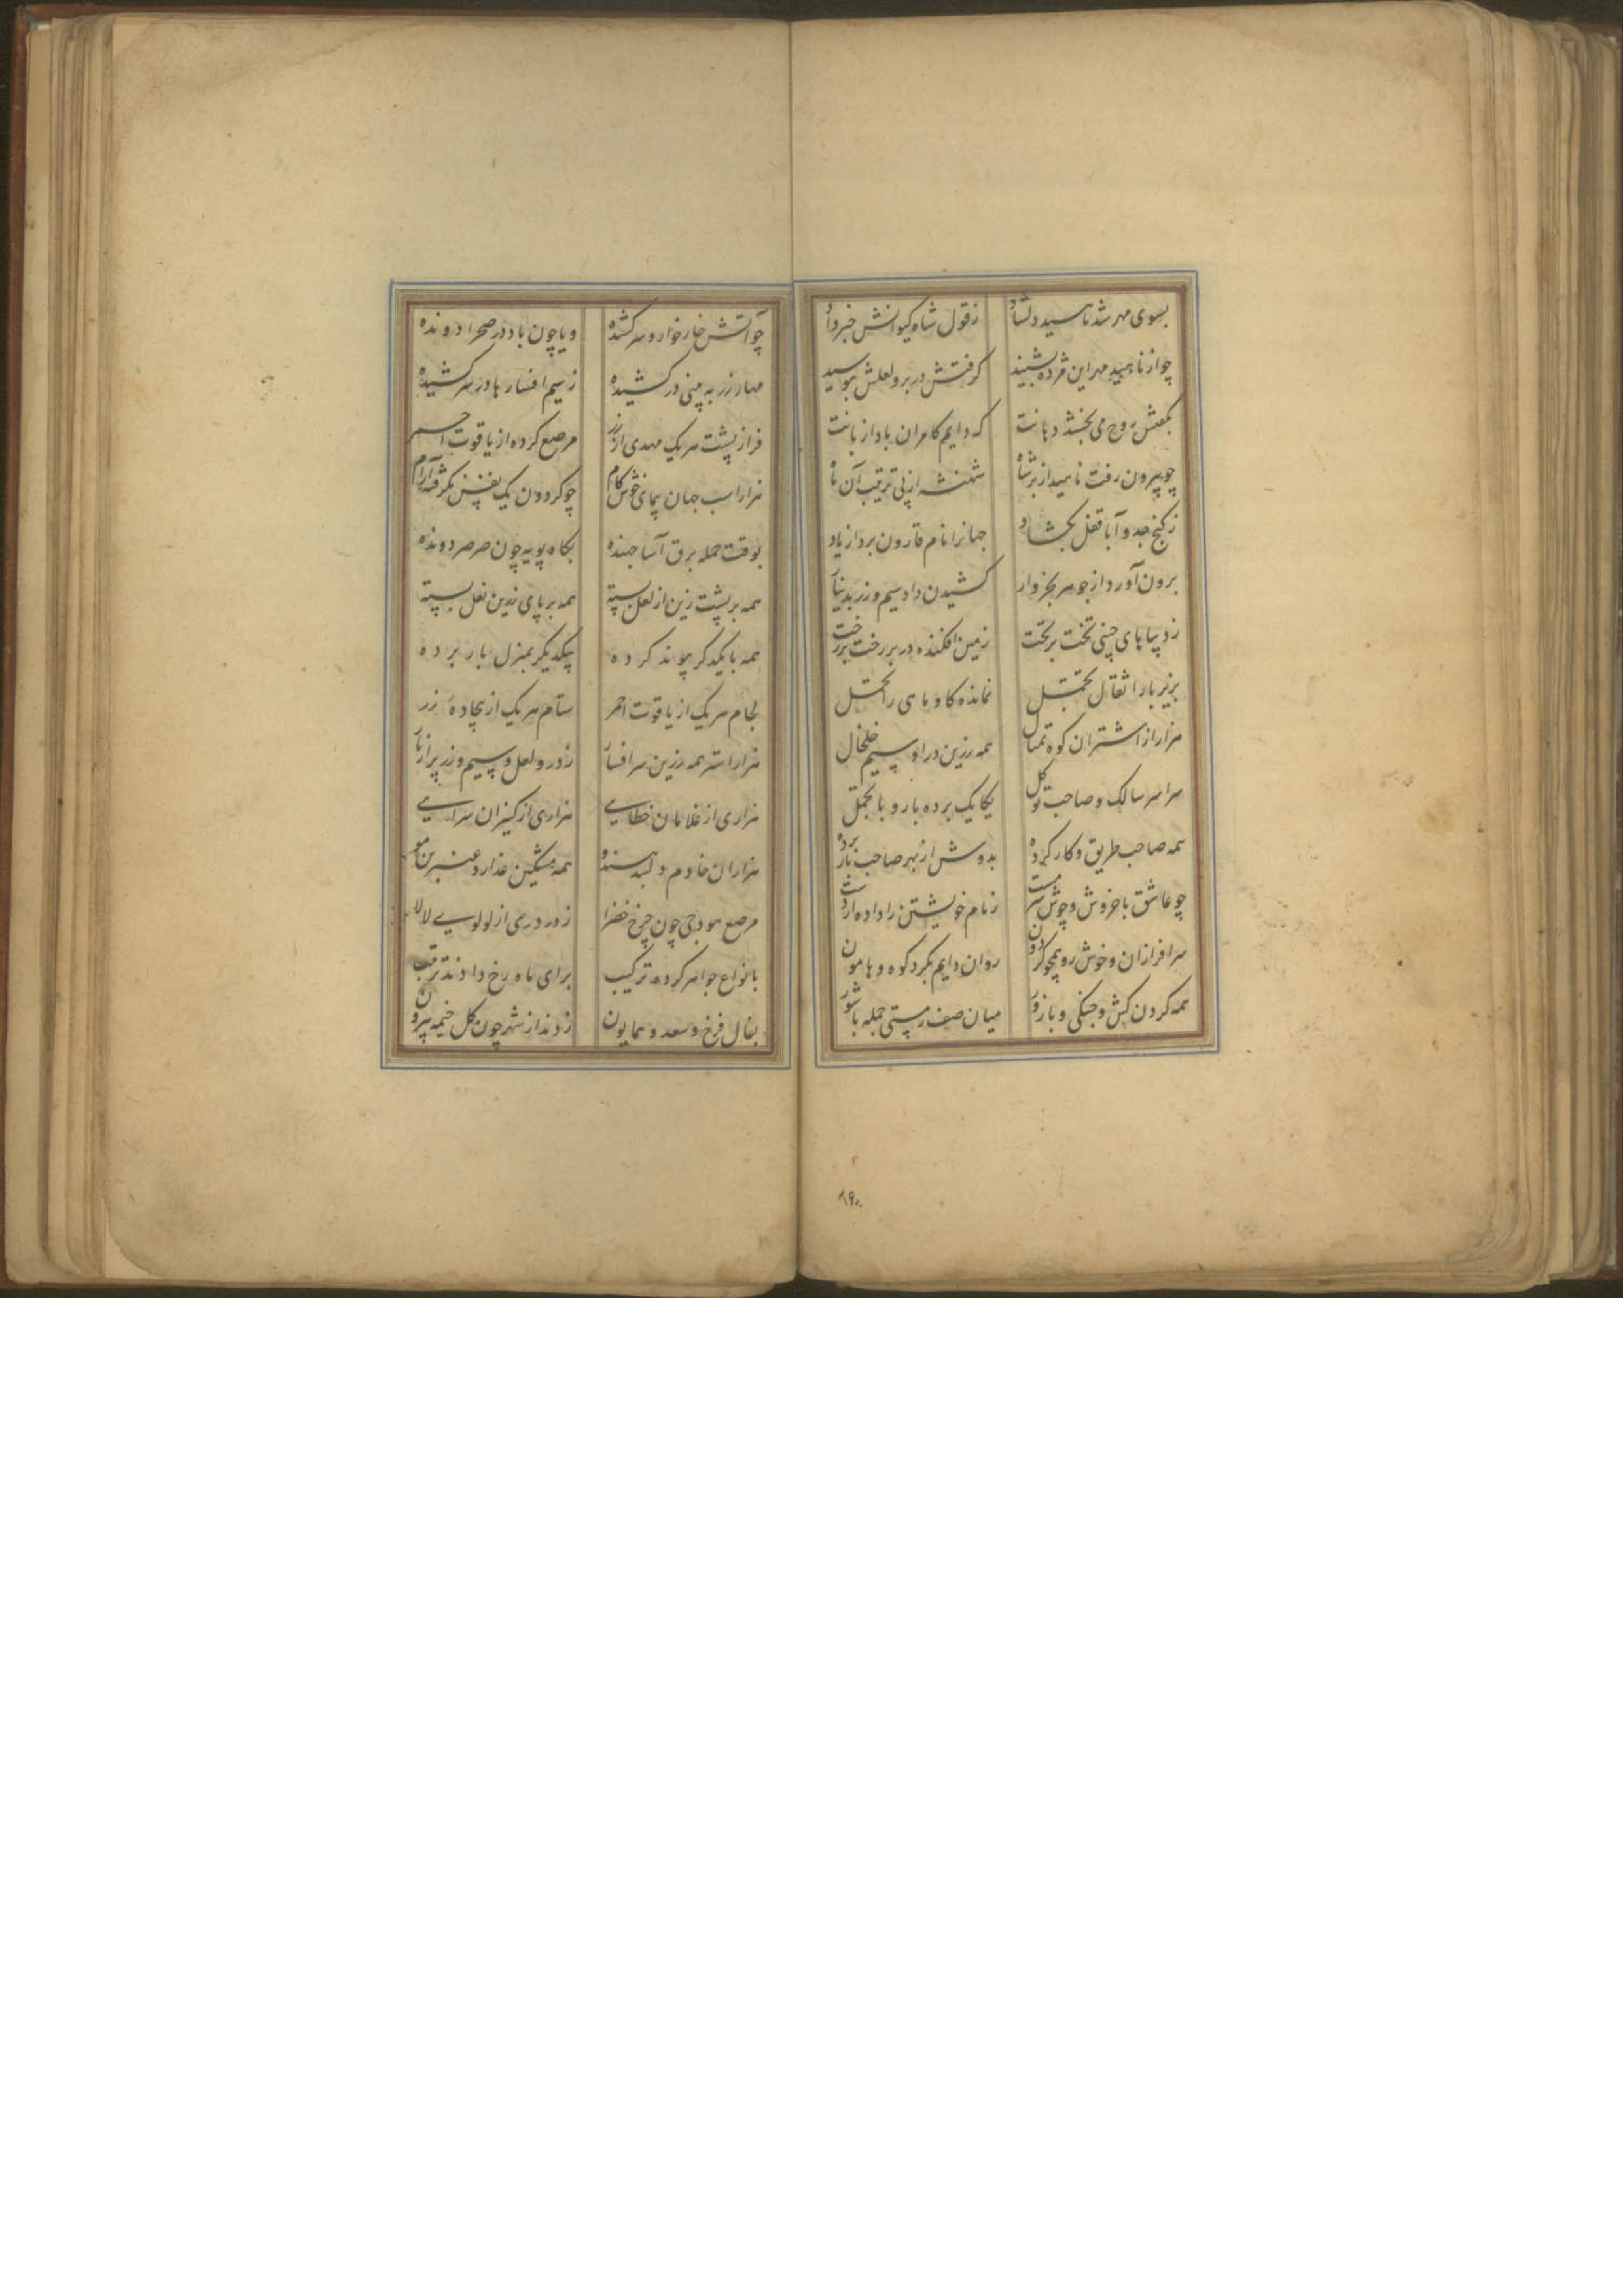 بسوی مهر شد ناهید دلشاد زقول شاه کیوانش خبر داد
چو از ناهید مهر این مژده بشنید گرفتش در بر و لعلش ببوسید
بگفتش روح می بخشد دهانت که دایم کامران باد از بانت
چو بیرون رفت ناهید از بر شاه شهنشه از پی ترتیب آن ماه
ز گنج جد و آبا قفل بگشاد جهانرا نام قارون برد از یاد
برون آورد از جوهر بخروار کشیدن داد سیم و زر بدینار
ز دیباهای چینی تخت بر تخت زمین افکنده در بر رخت بر رخت
بزیر بار اثقال تحمل نمانده کاو ماهی را تحمل
هزار از اشتران کوه تمثال همه زرین درا و سیم خلخال
سراسر سالک و صاحب توکل یکایک برده بار و با تجمل
همه صاحب طریق و کار کرده بدوش از بهر صاحب بار برده
چو عاشق با خروش و جوش سرمست زمام خویشتن را داده از دست
سرافرازان و خوش رو همچو گردون روان دایم بگرد کوه و هامون
همه گردن کش و جنگی و با زور میان صف زمستی جمله با شور
۱۹۰
چو آتش خار خوار و سرکشنده و یا چون باد در صحرا دونده
مهار زر به بینی در کشیده ز سیم افسارها در سر کشیده
فراز پشت هر یک مهدی از زر مرصع کرده از یاقوت احمر
هزار اسب جهان پیمای خوش کام چو گردون یک نفس نگرفته آرام
بوقت حمله برق آسا جهنده بگاه پویه چون صرصر دونده
همه بر پشت زین از لعل بسته همه بر پای زرین نعل بسته
همه با یکدگر پیوند کرده بیکدیگر بمنزل بار برده
لجام هر یک از یاقوت احمر ستام هر یک از بجاده زر
هزار استر همه زرین سر افسار ز در و لعل و سیم و زر پر از بار
هزاری از غلامان خطایی هزاری از کنیزان سرایی
هزاران خادم دلبند هندو همه مشکین عذار و عنبرین مو
مرصع هودجی چون چرخ خضرا ز در دری از لولوی لالا
بانواع جواهر کرده ترکیب برای ماه رخ دادند ترتیب
بفال فرخ و سعد و همایون زدند از شهر چون گل خیمه بیرون